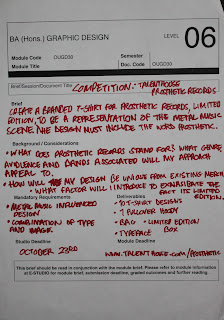 BA (Hons.) GRAPHIC DESIGN
LEVEL 06
Module Code OUGD30
Semester
Module Title
Doc. Code OUGD30
Brief/Session/Document Title
COMPETITION: TALENTHOUSE
PROSTHETIC RECORDS
Brief
CREATE A BRANDED T-SHIRT FOR PROSTHETIC RECORDS, LIMITED
EDITION, TO BE A REPRESENTATION OF THE METAL MUSIC
SCENE. THE DESIGN MUST INCLUDE THE WORD PROSTHETIC.
Background / Considerations
• WHAT DOES PROSTHETIC RECORDS STAND FOR? WHAT GENRE,
AUDIENCE AND BANDS ASSOCIATED WILL MY APPROACH
APPEAL TO.
• HOW WILL MY DESIGN BE UNIQUE FROM EXISTING MERCH
• WHAT FACTOR WILL I INTRODUCE TO THE
FACT ITS LIMITED
EDITION.
Mandatory Requirements
• METAL MUSIC INFLUENCED
DESIGN
• COMBINATION OF TYPE
AND IMAGE.
Deliverables
• 10 T-SHIRT DESIGNS
• 7 PULLOVER HOODY
• BAG • LIMITED EDITION
BOX
• TYPEFACE
Studio Deadline
Module Deadline
OCTOBER 23RD
This brief should be read in conjunction with the module brief. Please refer to module information
at E-STUDIO for module brief, submission deadline, graded outcomes and further reading.